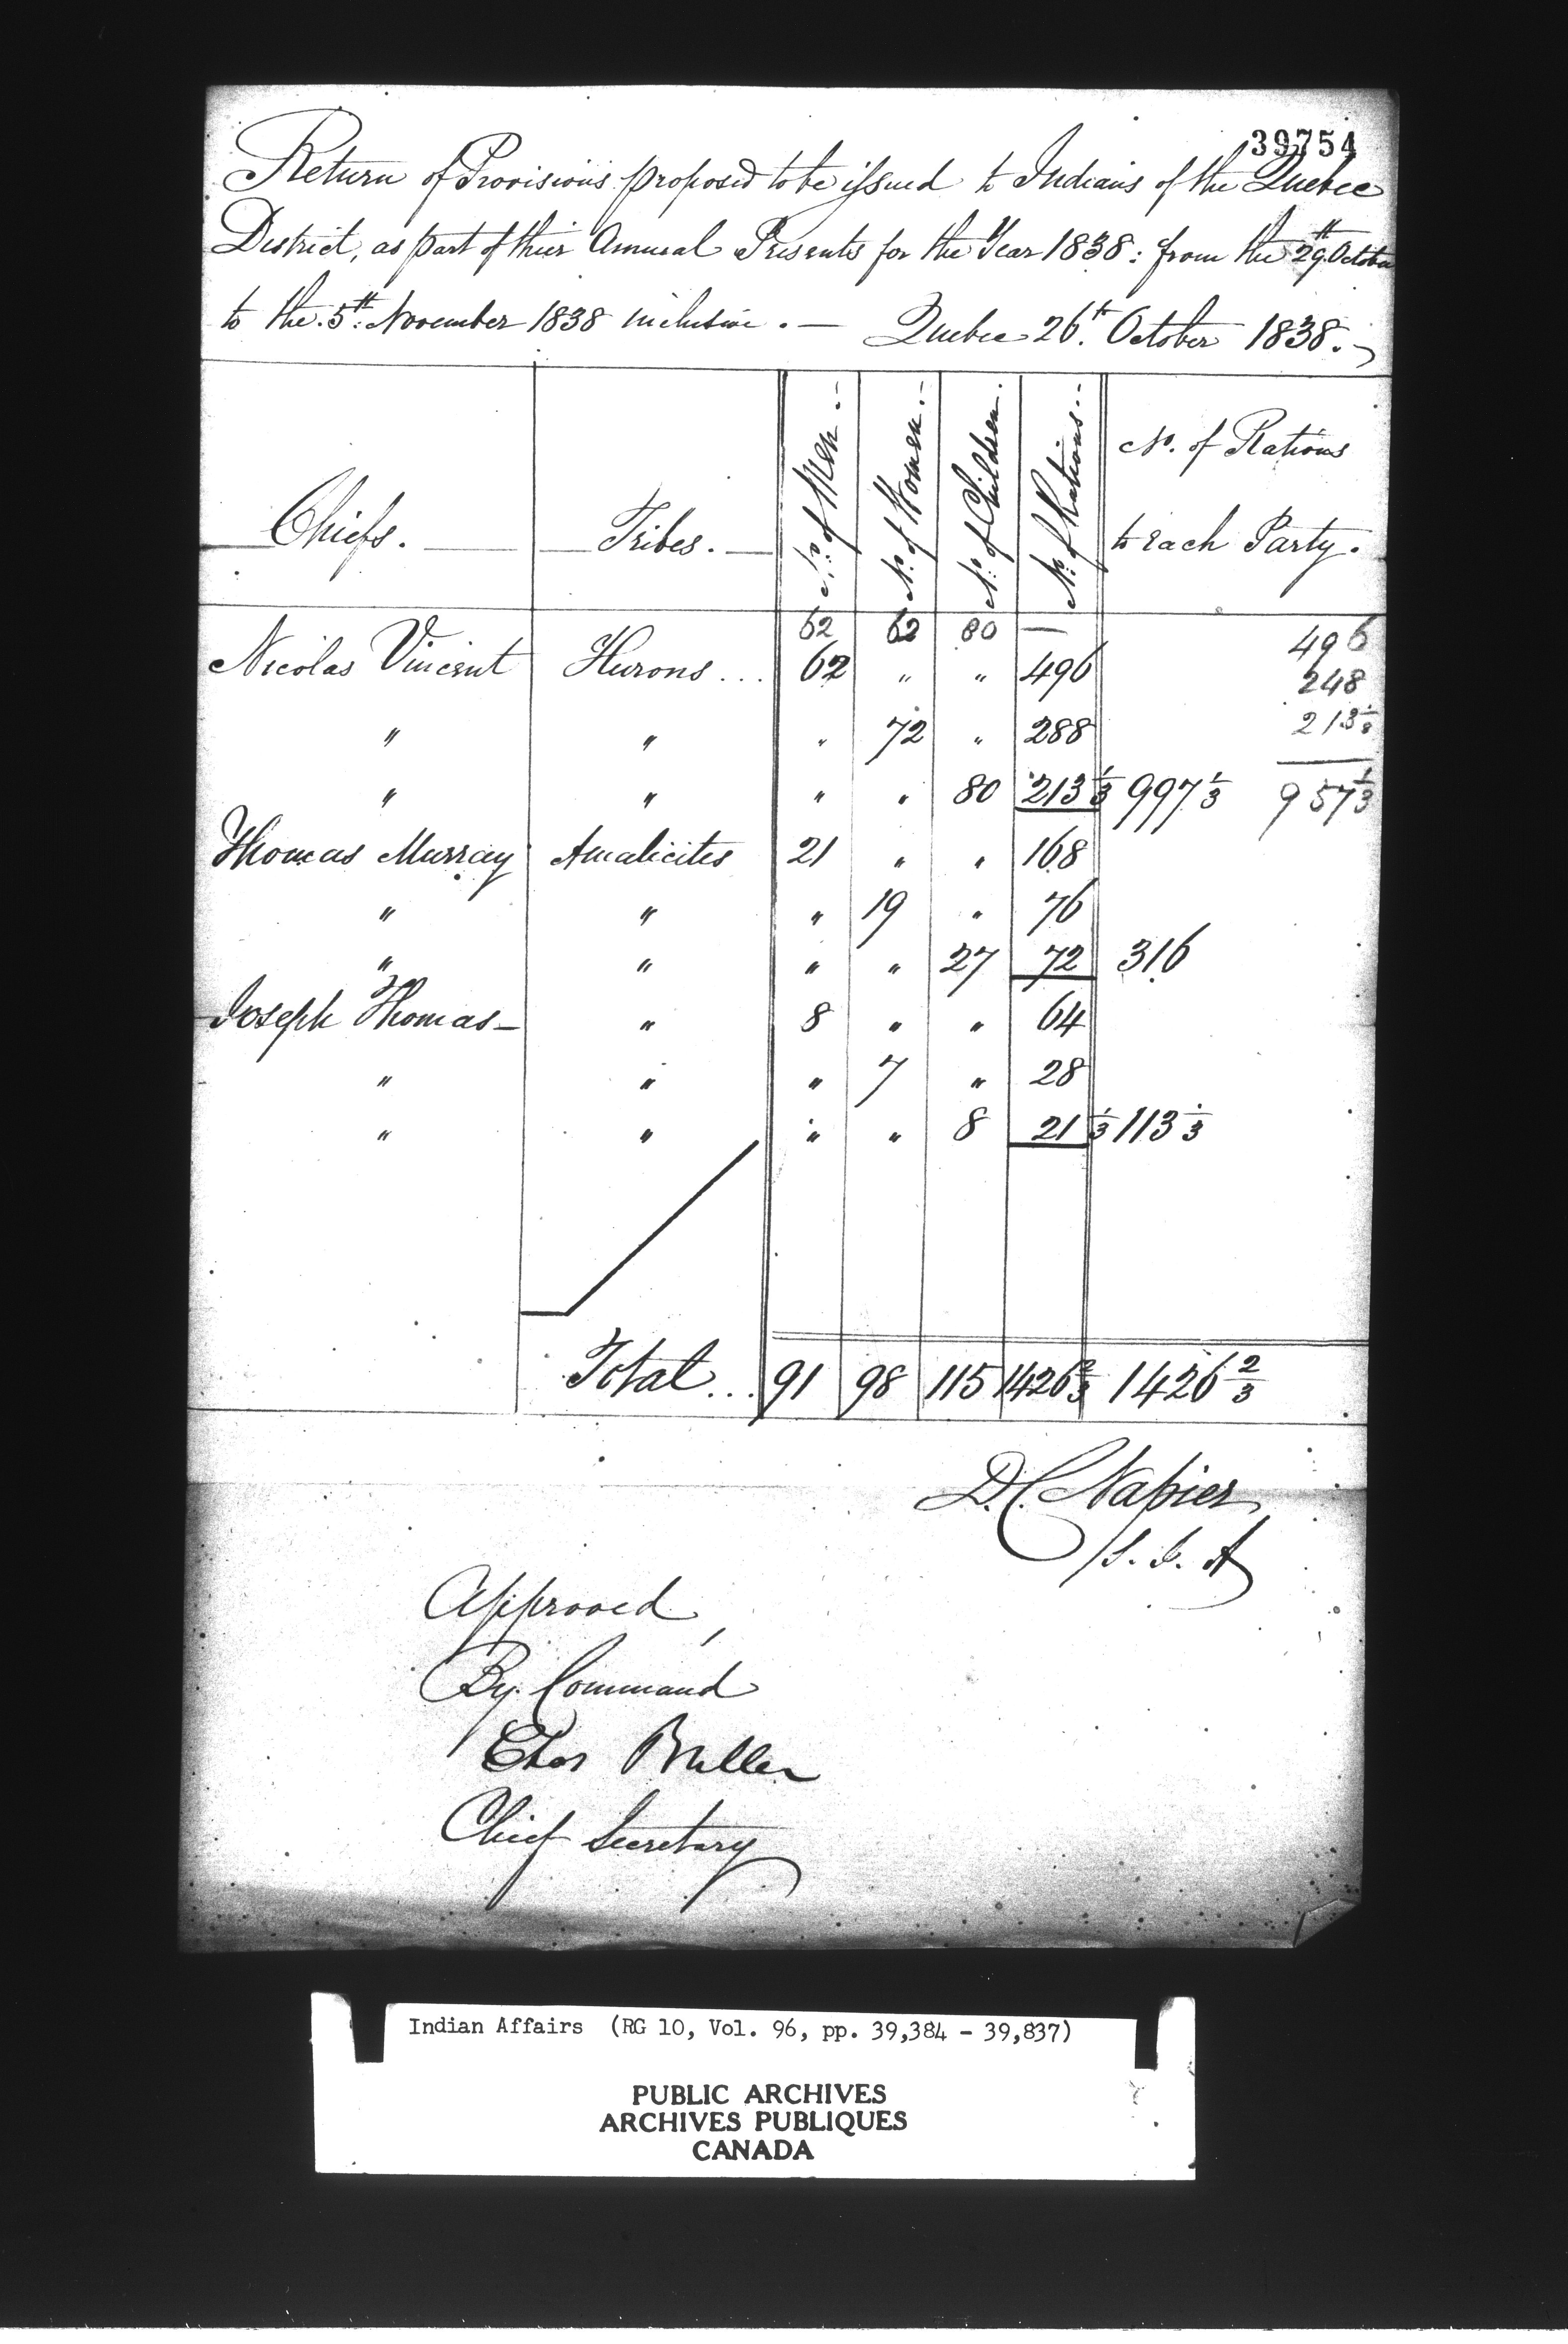 39754
Return of Provisions proposed to be issued to Indians of the Quebec
District, as part of their Annual Presents for the Year 1838: from the 29th October
to the 5th November 1838 inclusive. — Quebec 26th October 1838.
Chiefs. Tribes. No. of Men. No. of Women. No. of Children. No. of Rations. No. of Rations to each Party.
62 62 80 — 496
Nicolas Vincent Hurons... 62 " " 496 248
" " " 72 " 288 213 1/3
" " " " 80 213 1/3 997 1/3 957 1/3
Thomas Murray Amalicites 21 " " 168
" " " 19 " 76
" " " " 27 72 316
Joseph Thomas — " 8 " " 64
" " " 7 " 28
" " " " 8 21 1/3 113 1/3
Total... 91 98 115 1426 2/3 1426 2/3
D.C. Napier
S. I. A
Approved,
By Command
Chas Buller
Chief Secretary
Indian Affairs (RG 10, Vol. 96, pp. 39,384 - 39,837)
PUBLIC ARCHIVES
ARCHIVES PUBLIQUES
CANADA